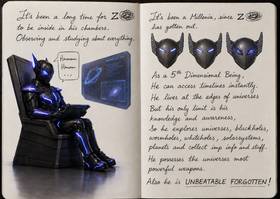 It's been a long time for Z
to be inside in his chambers.
Observing and studying about everything.
Hmmmm
Hmmm...
It's been a Millenia, since Z
has gotten out.
As a 5th Dimensional Being,
He can access timelines instantly.
He lives at the edges of universes
But his only limit is his
knowledge and awareness,
So he explores universes, blackholes,
wormholes, whiteholes, solarsystems,
planets and collect imp info and stuff.
He possesses the universes most
powerful weapons.
Also he is UNBEATABLE FORGOTTEN!